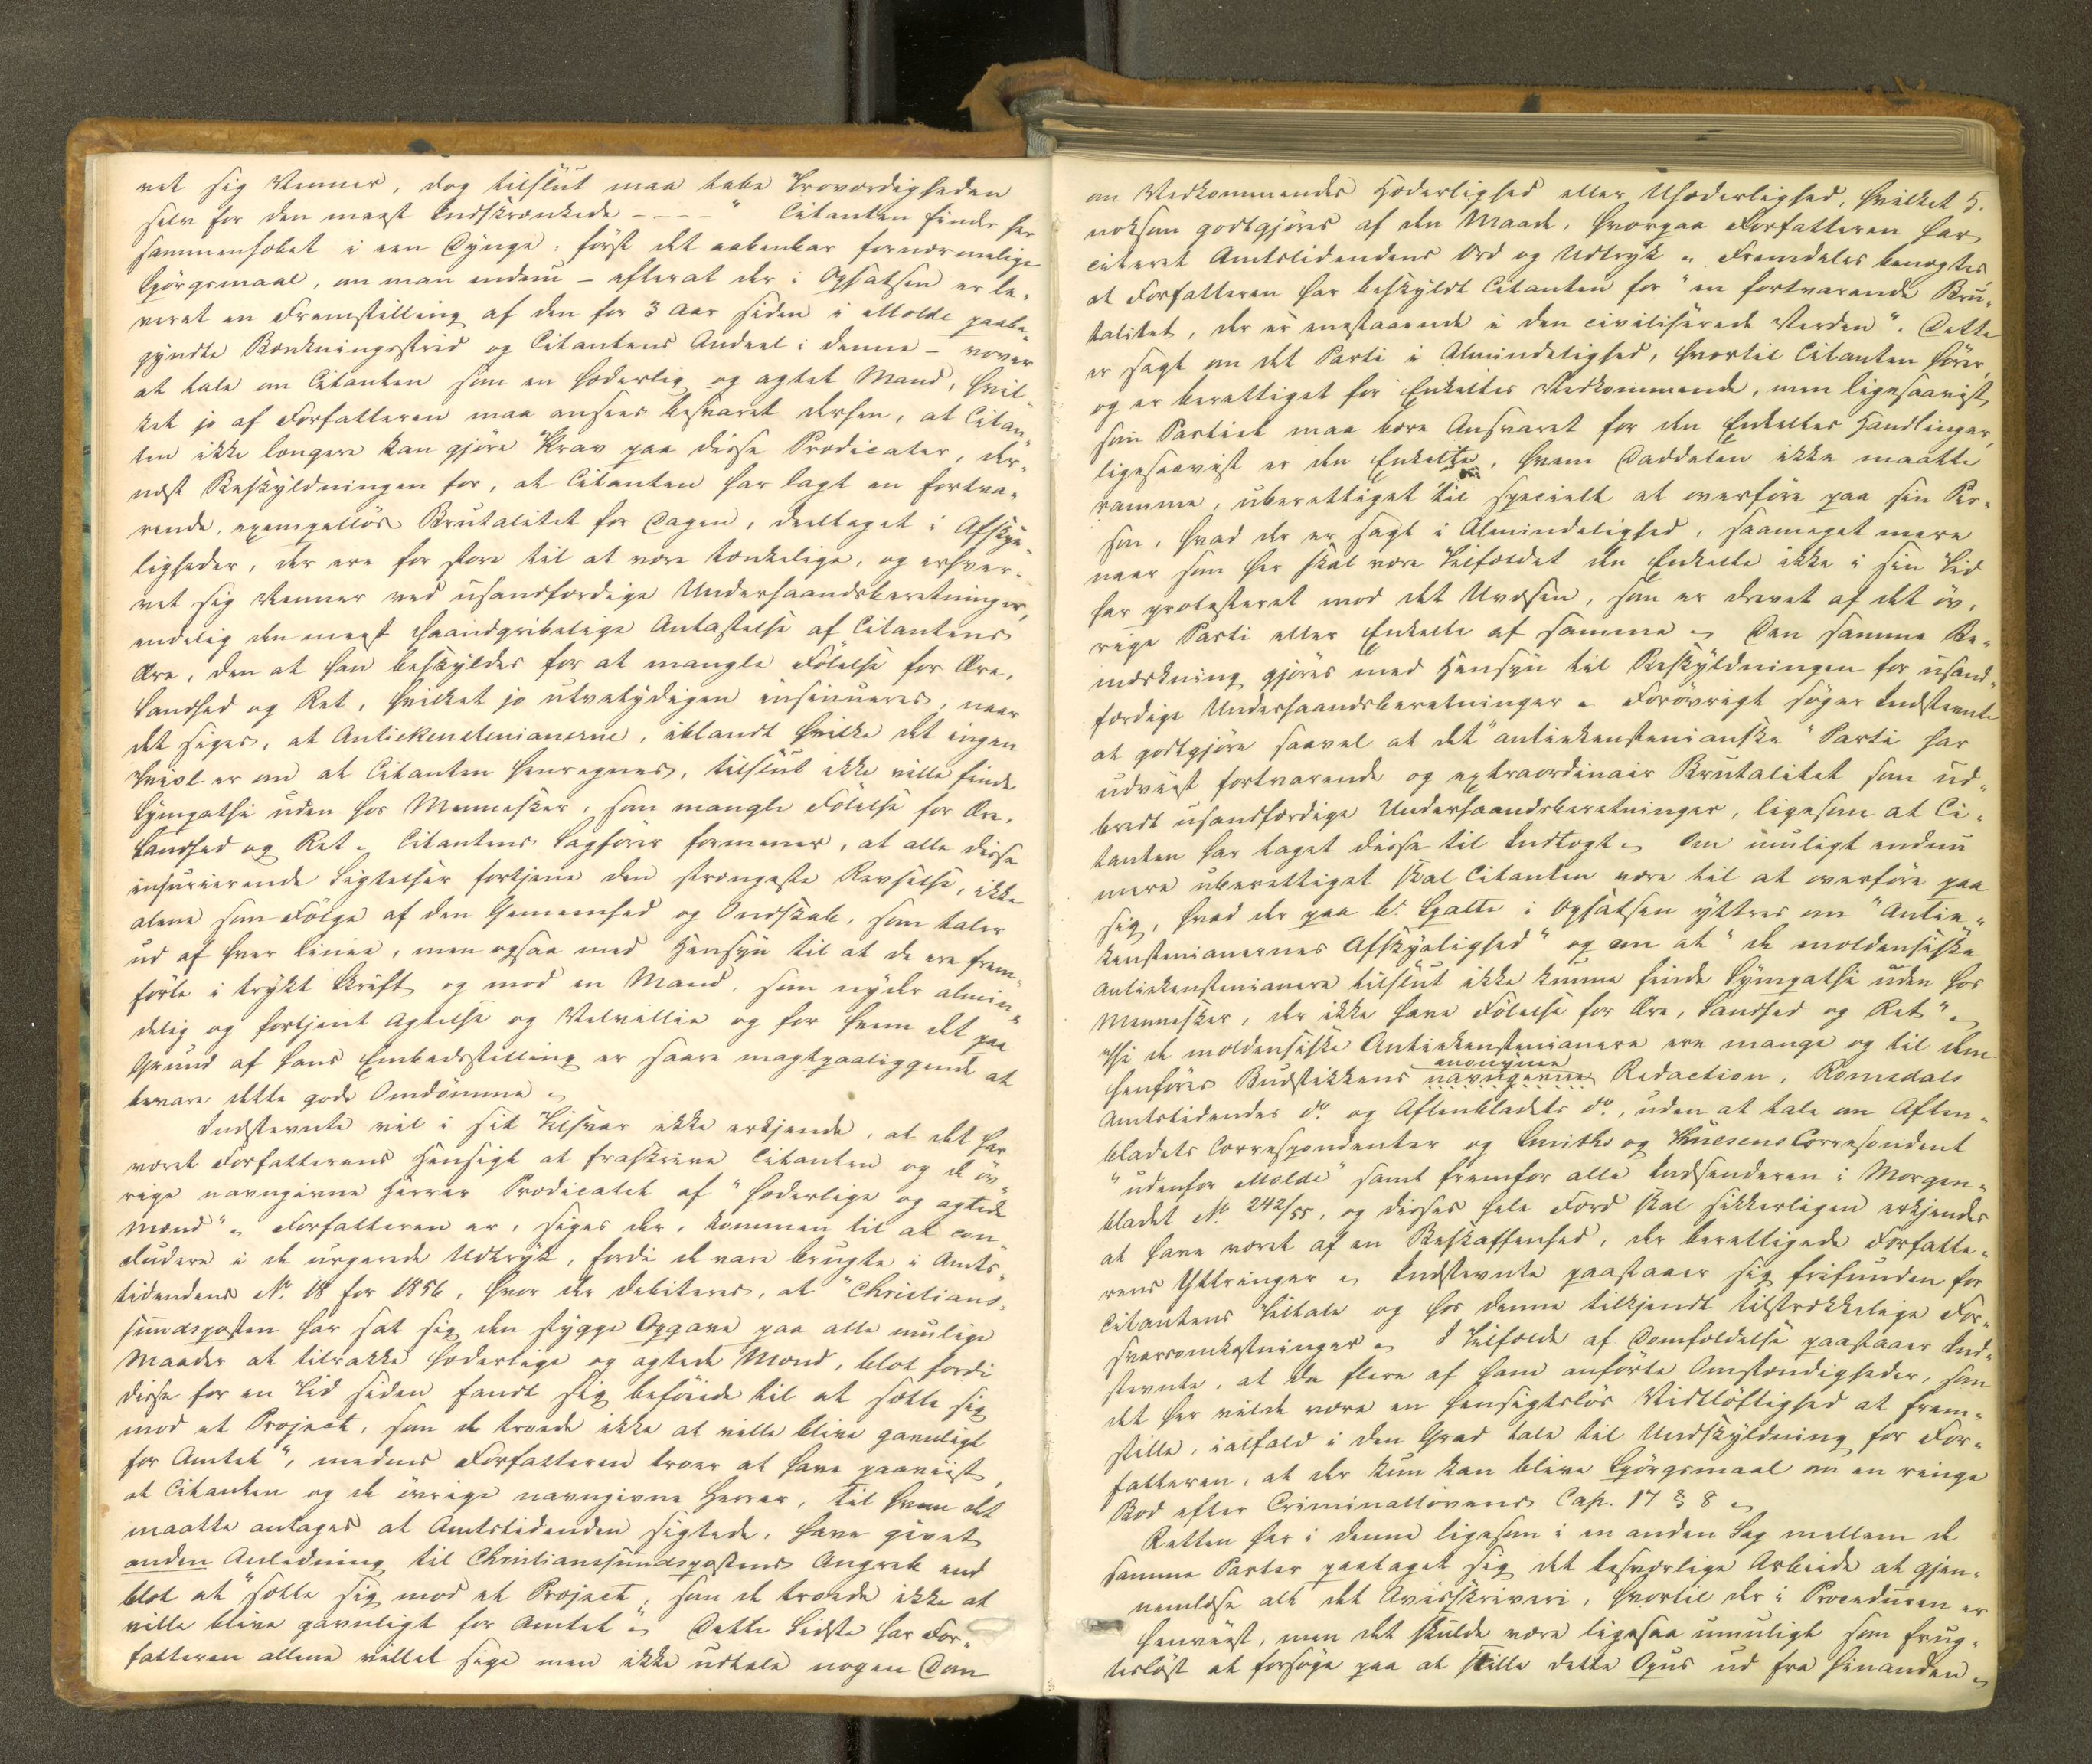 vet sig Venner, dog tilslut maa tabe Troværdigheden
selv for den meest Indskrænkede - - - - " Citanten finder her
sammenhobet i een Dynge: först det aabenbar fornærmelige
Spörgsmaal, om man endnu - efterat der i Opsatsen er le-
veret en Fremstilling af den for 3 Aar siden i Molde paabe-
gyndte Bænkningsstrid og Citantens Andeel i denne - vover
at tale om Citanten som en hæderlig og agtet Mand, hvil-
ket jo af Forfatteren maa ansees besvaret derhen, at Citan-
ten ikke længere kan gjöre Krav paa disse Prædicater, der-
næst Beskyldningen for, at Citanten har lagt en fortva-
rende, exempellös Brutalitet for Dagen, deeltaget i Afskye-
ligheder, der ere for store til at være tænkelige, og erhver-
vet sig Venner ved usandfærdige Underhaandsberetninger,
endelig den meest haandgribelige Antastelse af Citantens
Ære, den at han beskyldes for at mangle Fölelse for Ære,
Sandhed og Ret, hvilket jo utvetydigen insinueres, naar
det siges, at Antiekenstenianerne, iblandt hvilke det ingen
Tvivl er om at Citanten henregnes, tilslut ikke ville finde
Sympathi uden hos Mennesker, som mangle Fölelse for Ære,
Sandhed og Ret. Citantens Sagförer formener, at alle disse
injurierende Sigtelser fortjene den strængeste Revselse, ikke
alene som Fölge af den Gemeenhed og Ondskab, som taler
ud af hver Linie, men ogsaa med Hensyn til at de ere frem-
förte i trykt Skrift og mod en Mand, som nyder almin-
delig og fortjent Agtelse og Velvillie og for hvem det paa
Grund af hans Embedsstilling er saare magtpaaliggende at
bevare dette gode Omdömme.
Indstevnte vil i sit Tilsvar ikke erkjende, at det har
været Forfatterens Hensigt at fraskrive Citanten og de öv-
rige navngivne Herrer Prædicatet af "hæderlige og agtede
Mænd". Forfatteren er, siges der, kommen til at con-
cludere i de urgerede Udtryk, fordi de vare brugte i Amts-
tidendens No. 18 for 1856, hvor der debiteres, at "Christians-
sundsposten har sat sig den stygge Opgave paa alle mulige
Maader at tilrakke hæderlige og agtede Mænd, blot fordi
disse for en Tid siden fandt sig beföiede til at sætte sig
mod et Project, som de troede ikke at ville blive gavnligt
for Amtet", medens Forfatteren troer at have paaviist,
at Citanten og de övrige navngivne Herrer, til hvem det
maatte antages at Amtstidenden sigtede, have givet
anden Anledning til Christianssundspostens Angreb end
blot at "sætte sig mod et Project, som de troede ikke at
ville blive gavnligt for Amtet". Dette Sidste har For-
fatteren allene villet sige men ikke udtale nogen Dom
om Vedkommendes Hæderlighed eller Uhæderlighed, hvilket
noksom godtgjöres af den Maade, hvorpaa Forfatteren har
citeret Amtstidendens Ord og Udtryk. Fremdeles benægtes
at Forfatteren har beskyldt Citanten for "en fortvarende Bru-
talitet, der er enestaaende i den civiliserede Verden". Dette
er sagt om det Parti i Almindelighed, hvortil Citanten hörer,
og er berettiget for Enkeltes Vedkommende, men ligesaavist
som Partiet maa bære Ansvaret for den Enkeltes Handlinger,
ligesaavist er den Enkelte, hvem Daddelen ikke maatte
ramme, uberettiget til specielt at overföre paa sin Per-
son, hvad der er sagt i Almindelighed, saameget mere
naar som her skal være Tilfældet den Enkelte ikke i sin Tid
har protesteret mod det Uvæsen, som er drevet af det öv-
rige Parti eller Enkelte af samme. Den samme Be-
mærkning gjöres med Hensyn til Beskyldningen for usand-
færdige Underhaandsberetninger. Forövrigt söger Indstevnte
at godtgjöre saavel at det "antiekenstenianske" Parti har
udviist fortvarende og extraordinair Brutalitet som ud-
bredt usandfærdige Underhaandsberetninger, ligesom at Ci-
tanten har taget disse til Indtægt. Om muligt endnu
mere uberettiget skal Citanten være til at overföre paa
sig, hvad der paa 6t. Spalte i Opsatsen yttres om "Antie-
kenstenianernes Afskyelighed" og om at "de moldensiske
Antiekenstenianere tilslut ikke kunne finde Sympathi uden hos
Mennesker, der ikke have Fölelse for Ære, Sandhed og Ret".
Thi de moldensiske Antiekenstenianere ere mange og til dem
anonyme
henföres Budstikkens navngivne Redaction, Romsdals
Amtstidendes do. og Aftenbladets do., uden at tale om Aften-
bladets Correspondenter og Smiths og Thuesens Corresondent
"udenfor Molde" samt fremfor alle Indsenderen i Morgen-
bladet No. 242/55, og disses hele Færd skal sikkerligen erkjendes
at have været af en Beskaffenhed, der berettigede Forfatte-
rens Yttringer. Indstevnte paastaaer sig frifunden for
Citantens Tiltale og hos denne tilkjendt tilstrækkelige For-
svarsomkostninger. I Tilfælde af Domfældelse paastaaer Ind-
stevnte, at de flere af ham anförte Omstændigheder, som
det her vilde være en hensigtslös Vidtlöftighed at frem-
stille, ialfald i den Grad tale til Undskyldning for For-
fatteren, at der kun kan blive Spörgsmaal om en ringe
Bod efter Criminallovens Cap. 17 § 8.
Retten har i denne ligesom i en anden Sag mellem de
samme Parter paataget sig det besværlige Arbeide at gjen-
nemlæse alt det Avisskriveri, hvortil der i Proceduren er
henviist, men det skulde være ligesaa umuligt som frug-
teslöst at forsöge paa at skille dette Opus ud fra hinanden.